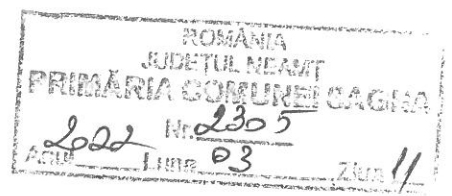 ROMÂNIA
JUDEŢUL NEAMŢ
PRIMĂRIA COMUNEI
Nr. 2305
Anul 2022 Luna 03 Ziua 11